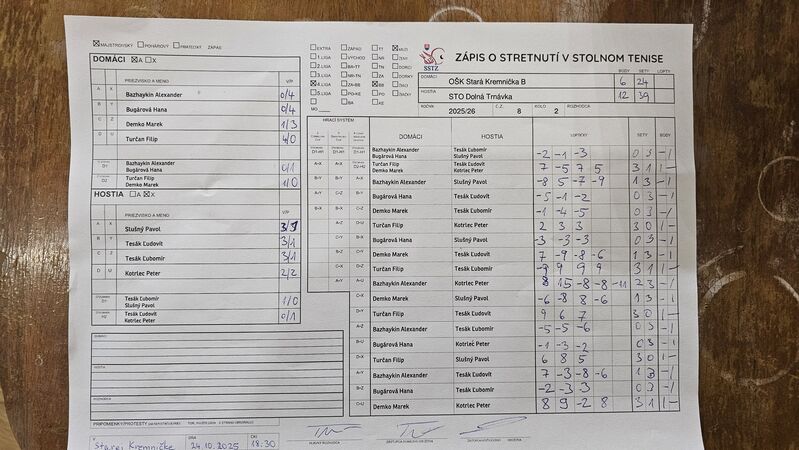 ☒ MAJSTROVSKÝ ☐ POHÁROVÝ ☐ PRIATEĽSKÝ ZÁPAS
DOMÁCI ☒ A ☐ X
PRIEZVISKO A MENO V/P
A X Bazhaykin Alexander 0/4
B Y Bugárová Hana 0/4
C Z Demko Marek 1/3
D U Turčan Filip 4/0
D1 Bazhaykin Alexander
Bugárová Hana 0/1
D2 Turčan Filip
Demko Marek 1/0
HOSTIA ☐ A ☒ X
PRIEZVISKO A MENO V/P
A X Slušný Pavol 3/1
B Y Tesák Ľudovít 3/1
C Z Tesák Ľubomír 3/1
D U Kotrlec Peter 2/2
Tesák Ľubomír
Slušný Pavol 1/0
H2 Tesák Ľudovít
Kotrlec Peter 0/1
DOMÁCI
HOSTIA
ROZHODCA
PRIPOMIENKY/PROTESTY
V Starej Kremničke DŇA 24.10.2025 OKI 18:30
HLAVNÝ ROZHODCA
☐ EXTRA ☐ ZÁPAD ☐ TT ☒ MUŽI
☐ 1. LIGA ☐ VÝCHOD ☐ NR ☐ ŽENY
☐ 2. LIGA ☐ BA-TT ☐ TN ☐ DORCI
☐ 3. LIGA ☐ ZA ☐ DORKY
☒ 4. LIGA ☐ ZA-BB ☒ BB ☐ ŽIACI
☐ 5. LIGA ☐ PO-KE ☐ PO ☐ ŽIAČKY
MO
SSTZ
ZÁPIS O STRETNUTÍ V STOLNOM TENISE
DOMÁCI BODY SETY LOPTY
OŠK Stará Kremnička B 6 24
HOSTIA
STO Dolná Trnávka 12 39
ROČNÍK 2025/26 Č.Z. 8 KOLO 2 ROZHODCA
HRACÍ SYSTÉM
DOMÁCI HOSTIA LOPTIČKY SETY BODY
Bazhaykin Alexander Tesák Ľubomír
Bugárová Hana Slušný Pavol -2 -1 -3 0 3 -/1
Turčan Filip Tesák Ľudovít
Demko Marek Kotrlec Peter 7 -5 7 5 3 1 1/-
A-X Bazhaykin Alexander Slušný Pavol -8 5 -7 -9 1 3 -/1
Bugárová Hana Tesák Ľudovít -5 -1 -2 0 3 -/1
Demko Marek Tesák Ľubomír -1 -4 -5 0 3 -/1
Turčan Filip Kotrlec Peter 2 3 3 3 0 1/-
Bugárová Hana Slušný Pavol -3 -3 -3 0 3 -/1
Demko Marek Tesák Ľudovít 7 -9 -8 -6 1 3 -/1
Turčan Filip Tesák Ľubomír -9 9 9 9 3 1 1/-
Bazhaykin Alexander Kotrlec Peter 8 15 -8 -8 -11 2 3 -/1
Demko Marek Slušný Pavol -6 -8 8 -6 1 3 -/1
Turčan Filip Tesák Ľudovít 9 6 7 3 0 1/-
Bazhaykin Alexander Tesák Ľubomír -5 -5 -6 0 3 -/1
Bugárová Hana Kotrlec Peter -1 -3 -2 0 3 -/1
Turčan Filip Slušný Pavol 6 8 5 3 0 1/-
Bazhaykin Alexander Tesák Ľudovít 7 -3 -8 -6 1 3 -/1
Bugárová Hana Tesák Ľubomír -2 -3 3 0 3 -/1
Demko Marek Kotrlec Peter 8 9 -2 8 3 1 1/-